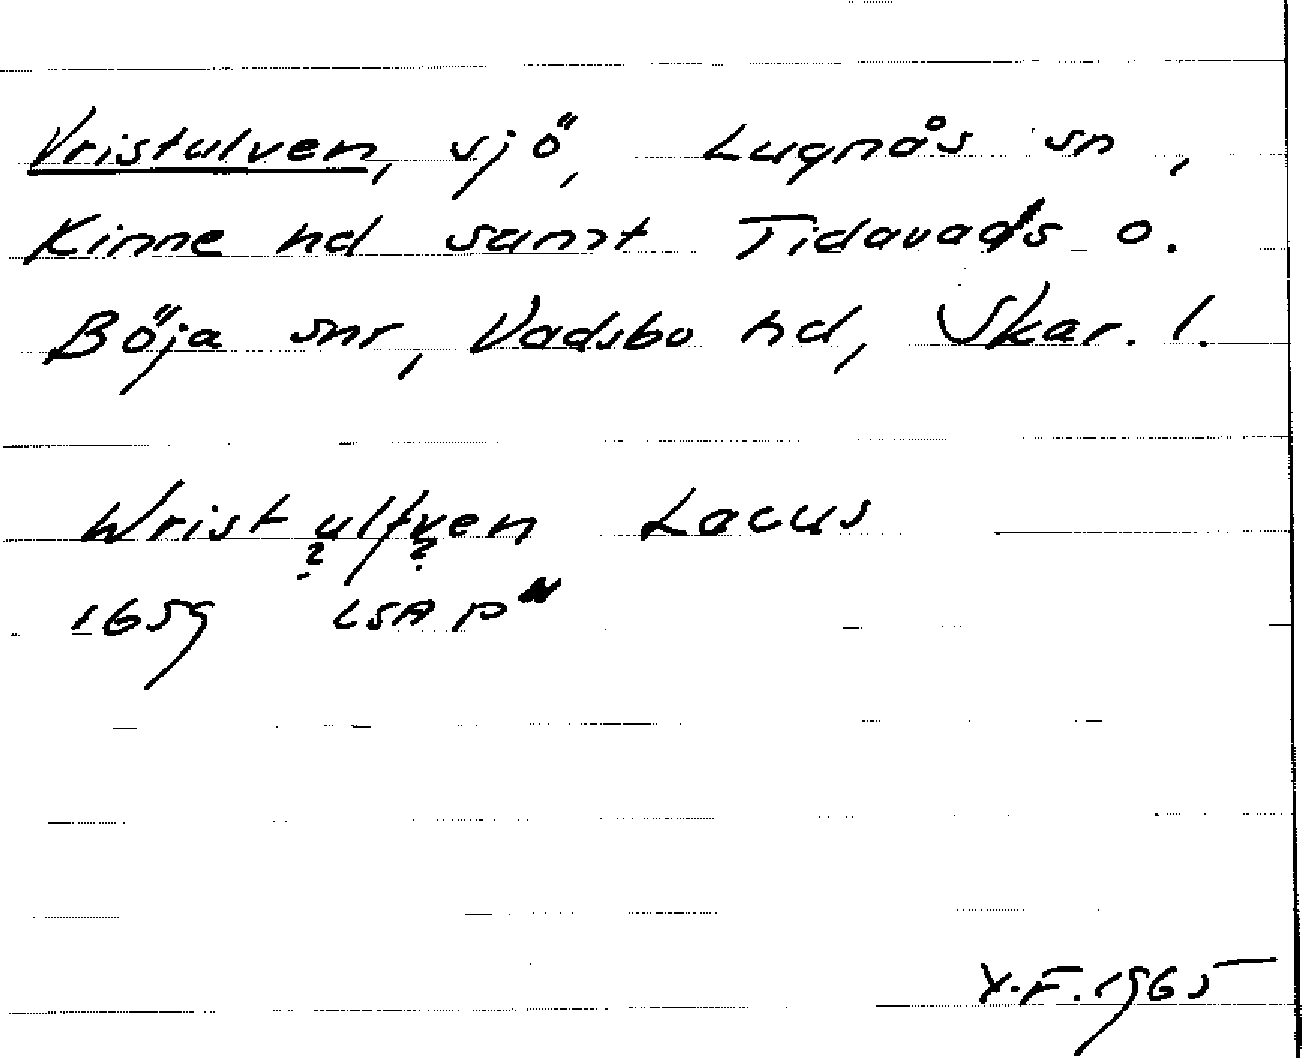 Vristulven, sjö, Lugnås sn,
Kinne hd samt Tidavads o.
Böja snr, Vadsbo hd, Skar. l.
Wristulfven Lacus
? ?
1659 LSA P"
Y.F. 1965